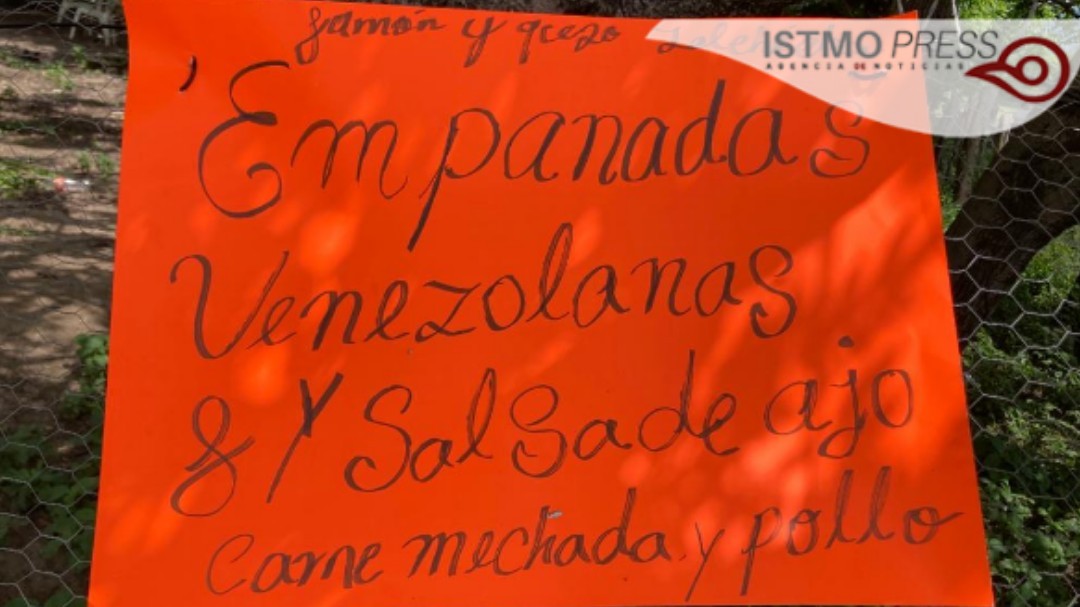 Jamón y qcezo
ISTMO PRESS
AGENCIA DE NOTICIAS
Empanadas
Venezolanas
& Y Salsa de ajo
Carne mechada y pollo